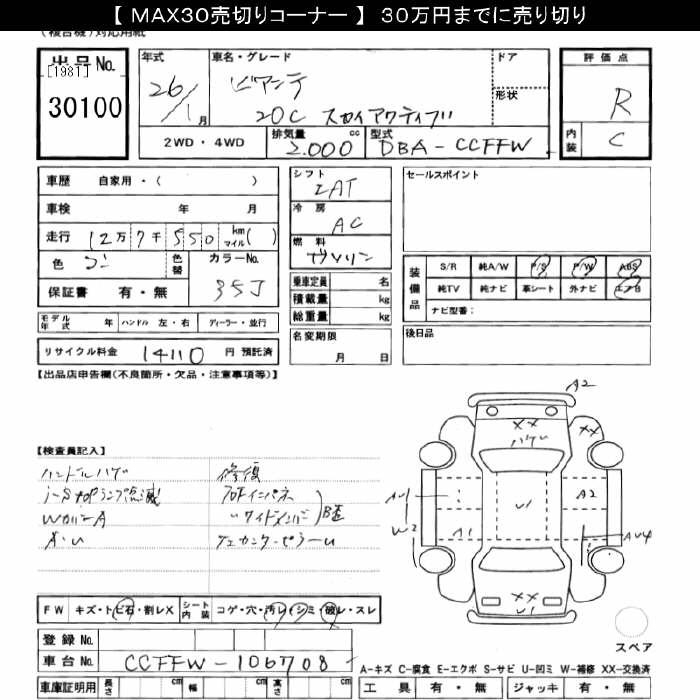 【 MAX30売切りコーナー 】 30万円までに売り切り
出品No.
[1981]
30100
年式
26/1月
車名・グレード
ビアンテ
20C スカイアクティブ
ドア
形状
評価点
R
内装
C
2WD・4WD
排気量
2.000 cc
型式
DBA-CCFFW
車歴 自家用・( )
車検 年 月
走行 12万7千550 km マイル( )
色
色替
カラーNo.
35J
保証書 有・無
シフト
IAT
冷房
AC
燃料
ガソリン
乗車定員 名
積載量 kg
総重量 kg
セールスポイント
装備品
S/R 純A/W P/S P/W ABS
純TV 純ナビ 革シート 外ナビ エアB
ナビ型番:
モデル年式 年 ハンドル 左・右 ディーラー・並行
リサイクル料金 14110 円 預託済
名変期限
月 日
後日品
【出品店申告欄(不良箇所・欠品・注意事項等)】
【検査員記入】
ハンドルハゲ
修復
WカバーA
A・U
A2
XX
U1
A1
A2
W2
AU4
XX
U1
FW キズ・トビ石・割レX
シート内装 コゲ・穴・汚レ・シミ・破レ・スレ
登録No.
車台No. CCFFW-106708
車庫証明用 長さ cm 幅 cm 高さ cm
スペア
A-キズ C-腐食 E-エクボ S-サビ U-凹ミ W-補修 XX-交換済
工具 有・無 ジャッキ 有・無